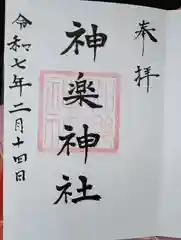 奉拝
神楽神社
令和七年二月十四日